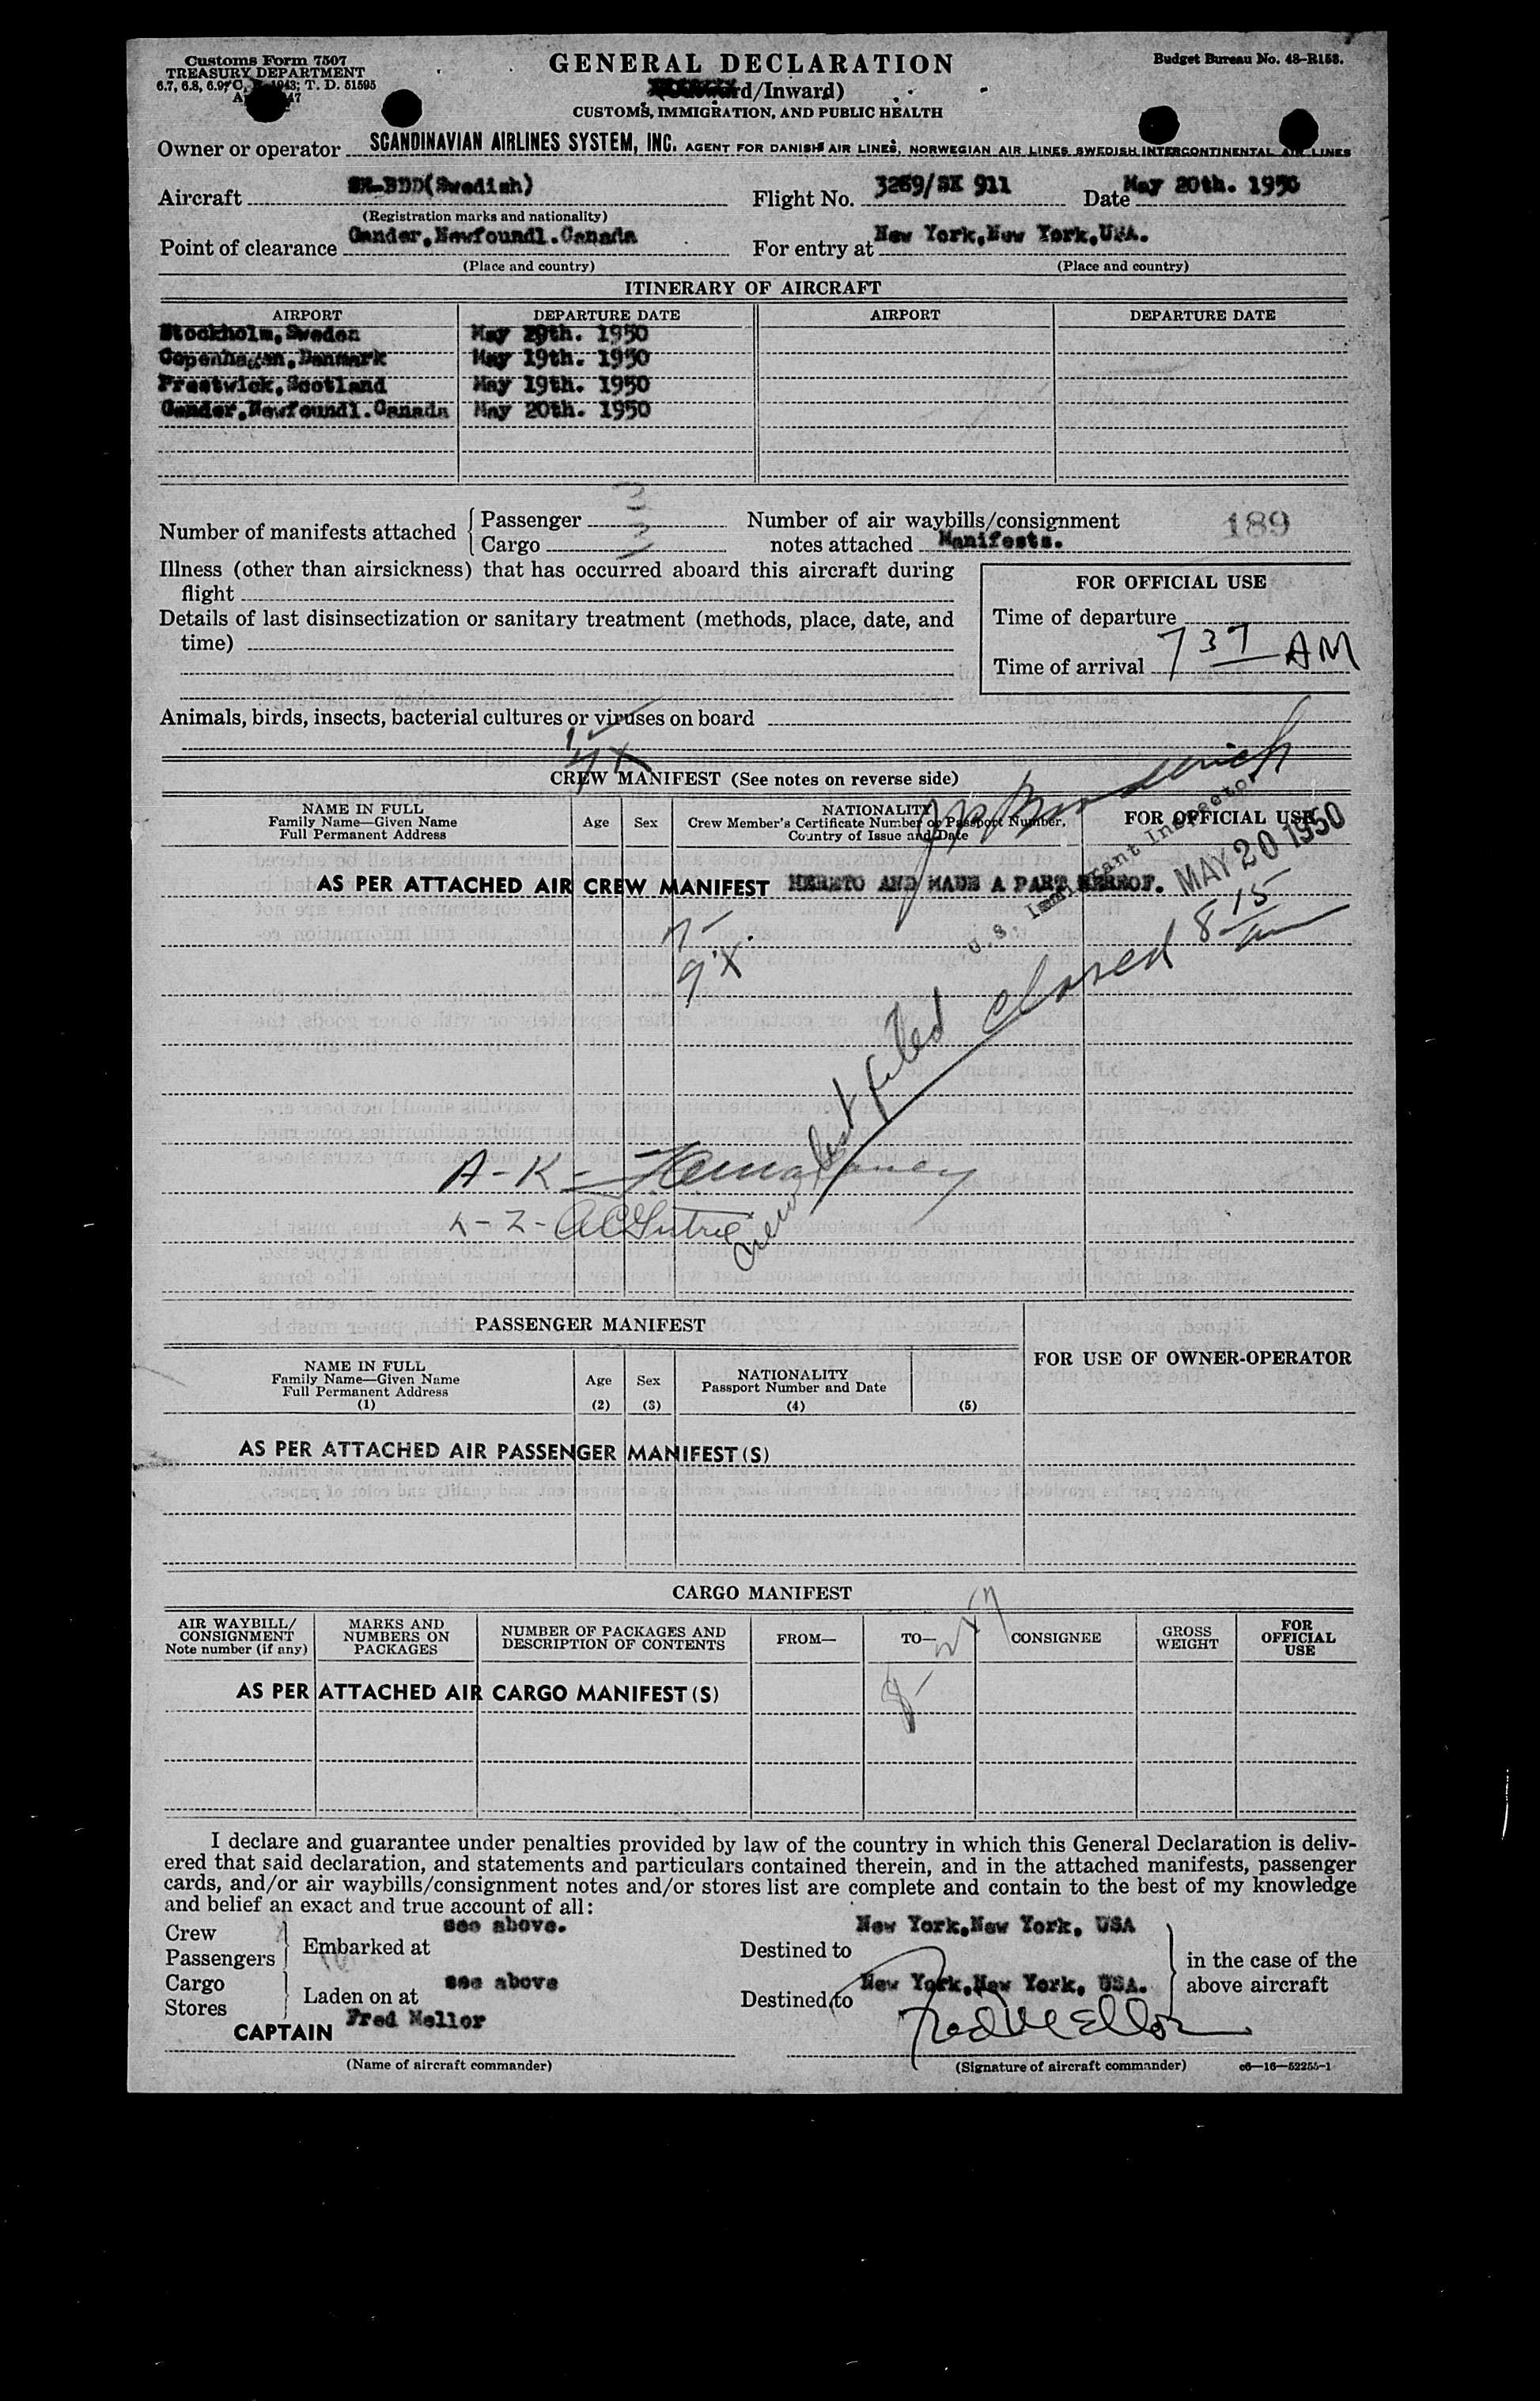 Customs Form 7507
TREASURY DEPARTMENT
6.7, 6.8, 6.9, C. 1943; T. D. 51595
GENERAL DECLARATION
d/Inward)
CUSTOMS, IMMIGRATION, AND PUBLIC HEALTH
Budget Bureau No. 48-R158.
Owner or operator SCANDINAVIAN AIRLINES SYSTEM, INC. AGENT FOR DANISH AIR LINES, NORWEGIAN AIR LINES SWEDISH INTERCONTINENTAL AIR LINES
Aircraft SE-BDD(Swedish) Flight No. 3269/SK 911 Date May 20th. 1950
(Registration marks and nationality)
Point of clearance Gander,Newfoundl.Canada For entry at New York,New York,USA.
(Place and country) (Place and country)
ITINERARY OF AIRCRAFT
AIRPORT DEPARTURE DATE AIRPORT DEPARTURE DATE
Stockholm,Sweden May 19th. 1950
Copenhagen,Danmark May 19th. 1950
Prestwick,Scotland May 19th. 1950
Gander,Newfoundl.Canada May 20th. 1950
Number of manifests attached Passenger 3 Number of air waybills/consignment 189
Cargo 3 notes attached Manifests.
Illness (other than airsickness) that has occurred aboard this aircraft during
flight
Details of last disinsectization or sanitary treatment (methods, place, date, and
time)
FOR OFFICIAL USE
Time of departure
Time of arrival 7 37 AM
Animals, birds, insects, bacterial cultures or viruses on board
CREW MANIFEST (See notes on reverse side)
NAME IN FULL
Family Name—Given Name
Full Permanent Address
Age Sex
NATIONALITY
Crew Member's Certificate Number or Passport Number,
Country of Issue and Date
FOR OFFICIAL USE
U.S. Immigrant Inspector
MAY 20 1950
AS PER ATTACHED AIR CREW MANIFEST HERETO AND MADE A PART HEREOF.
closed 8 15
Crew list filed
A-K-
L-Z-
PASSENGER MANIFEST
NAME IN FULL
Family Name—Given Name
Full Permanent Address
(1)
Age
(2)
Sex
(3)
NATIONALITY
Passport Number and Date
(4)
(5)
FOR USE OF OWNER-OPERATOR
AS PER ATTACHED AIR PASSENGER MANIFEST(S)
CARGO MANIFEST
AIR WAYBILL/
CONSIGNMENT
Note number (if any)
MARKS AND
NUMBERS ON
PACKAGES
NUMBER OF PACKAGES AND
DESCRIPTION OF CONTENTS
FROM—
TO—
CONSIGNEE
GROSS
WEIGHT
FOR
OFFICIAL
USE
AS PER ATTACHED AIR CARGO MANIFEST(S)
I declare and guarantee under penalties provided by law of the country in which this General Declaration is deliv-
ered that said declaration, and statements and particulars contained therein, and in the attached manifests, passenger
cards, and/or air waybills/consignment notes and/or stores list are complete and contain to the best of my knowledge
and belief an exact and true account of all:
Crew
Passengers
Embarked at see above.
Destined to New York,New York, USA
Cargo
Stores
Laden on at see above
Destined to New York,New York, USA.
in the case of the
above aircraft
CAPTAIN Fred Mellor
Fred Mellor
(Name of aircraft commander) (Signature of aircraft commander) c6—16—52255-1